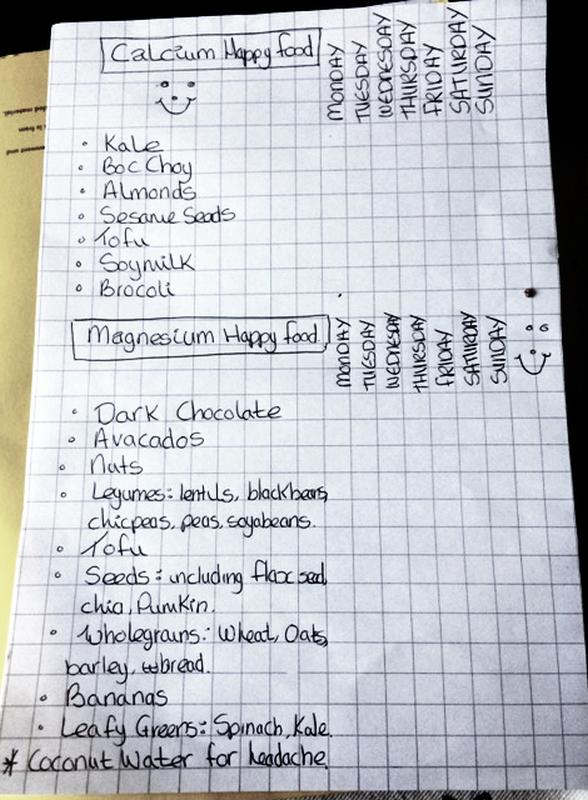 Calcium Happy food
MONDAY
TUESDAY
WEDNESDAY
THURSDAY
FRIDAY
SATURDAY
SUNDAY
• Kale
• Boc Choy
• Almonds
• Sesame Seeds
• Tofu
• Soymilk
• Brocoli
Magnesium Happy food
MONDAY
TUESDAY
WEDNESDAY
THURSDAY
FRIDAY
SATURDAY
SUNDAY
• Dark Chocolate
• Avacados
• Nuts
• Legumes: lentils, blackbeans,
chicpeas, peas, soyabeans.
• Tofu
• Seeds: including flax seed,
chia, Pumkin.
• Wholegrains: Wheat, Oats,
barley, bread.
• Bananas
• Leafy Greens: Spinach, Kale.
* Coconut Water for headache.